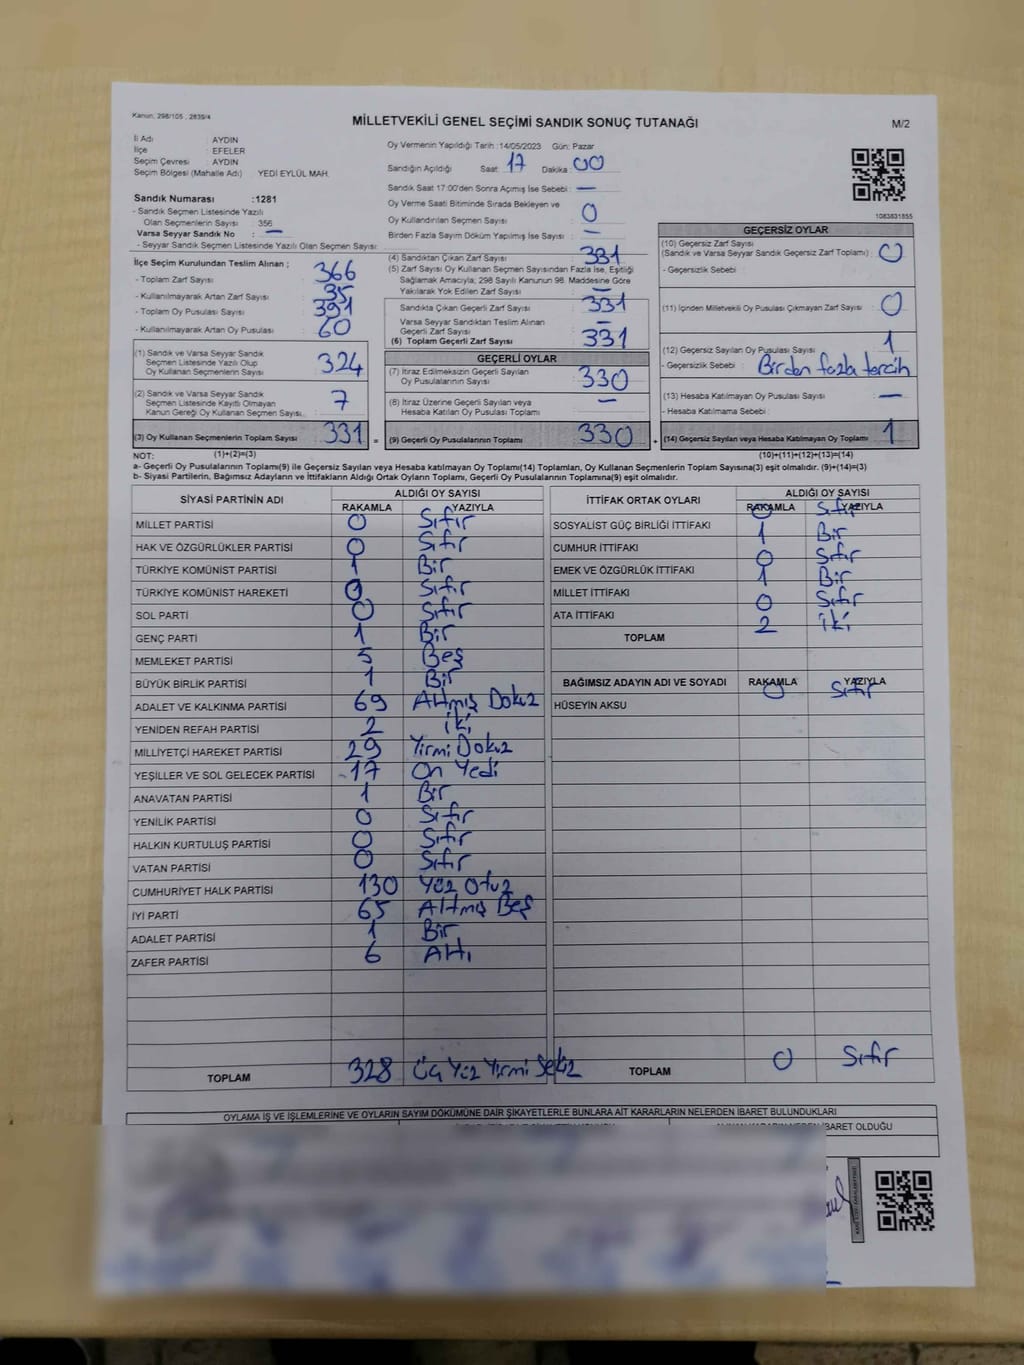 Kanun: 298/105 , 2839/4
MİLLETVEKİLİ GENEL SEÇİMİ SANDIK SONUÇ TUTANAĞI
M/2
İl Adı : AYDIN
İlçe : EFELER
Seçim Çevresi : AYDIN
Seçim Bölgesi (Mahalle Adı) YEDİ EYLÜL MAH.
Oy Vermenin Yapıldığı Tarih : 14/05/2023 Gün: Pazar
Sandığın Açıldığı Saat: 17 Dakika : 00
Sandık Saat 17:00'den Sonra Açmış İse Sebebi : —
Oy Verme Saati Bitiminde Sırada Bekleyen ve
Oy Kullandırılan Seçmen Sayısı : 0
Birden Fazla Sayım Döküm Yapılmış İse Sayısı : —
Sandık Numarası :1281
- Sandık Seçmen Listesinde Yazılı
Olan Seçmenlerin Sayısı : 356
Varsa Seyyar Sandık No : —
- Seyyar Sandık Seçmen Listesinde Yazılı Olan Seçmen Sayısı:
İlçe Seçim Kurulundan Teslim Alınan ;
- Toplam Zarf Sayısı : 366
- Kullanılmayarak Artan Zarf Sayısı : 35
- Toplam Oy Pusulası Sayısı : 391
- Kullanılmayarak Artan Oy Pusulası : 60
(1) Sandık ve Varsa Seyyar Sandık
Seçmen Listesinde Yazılı Olup
Oy Kullanan Seçmenlerin Sayısı 324
(2) Sandık ve Varsa Seyyar Sandık
Seçmen Listesinde Kayıtlı Olmayan
Kanun Gereği Oy Kullanan Seçmen Sayısı 7
(3) Oy Kullanan Seçmenlerin Toplam Sayısı 331 =
(4) Sandıktan Çıkan Zarf Sayısı : 331
(5) Zarf Sayısı Oy Kullanan Seçmen Sayısından Fazla İse, Eşitliği
Sağlamak Amacıyla; 298 Sayılı Kanunun 98. Maddesine Göre
Yakılarak Yok Edilen Zarf Sayısı : —
Sandıkta Çıkan Geçerli Zarf Sayısı : 331
Varsa Seyyar Sandıktan Teslim Alınan
Geçerli Zarf Sayısı : —
(6) Toplam Geçerli Zarf Sayısı : 331
GEÇERLİ OYLAR
(7) İtiraz Edilmeksizin Geçerli Sayılan
Oy Pusulalarının Sayısı : 330
(8) İtiraz Üzerine Geçerli Sayılan veya
Hesaba Katılan Oy Pusulası Toplamı : —
(9) Geçerli Oy Pusulalarının Toplamı 330 +
1083831855
GEÇERSİZ OYLAR
(10) Geçersiz Zarf Sayısı
(Sandık ve Varsa Seyyar Sandık Geçersiz Zarf Toplamı) : 0
- Geçersizlik Sebebi :
(11) İçinden Milletvekili Oy Pusulası Çıkmayan Zarf Sayısı : 0
(12) Geçersiz Sayılan Oy Pusulası Sayısı : 1
- Geçersizlik Sebebi : Birden fazla tercih
(13) Hesaba Katılmayan Oy Pusulası Sayısı : —
- Hesaba Katılmama Sebebi :
(14) Geçersiz Sayılan veya Hesaba Katılmayan Oy Toplamı 1
NOT: (1)+(2)=(3) (10)+(11)+(12)+(13)=(14)
a- Geçerli Oy Pusulalarının Toplamı(9) ile Geçersiz Sayılan veya Hesaba katılmayan Oy Toplamı(14) Toplamları, Oy Kullanan Seçmenlerin Toplam Sayısına(3) eşit olmalıdır. (9)+(14)=(3)
b- Siyasi Partilerin, Bağımsız Adayların ve İttifakların Aldığı Ortak Oyların Toplamı, Geçerli Oy Pusulalarının Toplamına(9) eşit olmalıdır.
SİYASİ PARTİNİN ADI ALDIĞI OY SAYISI
RAKAMLA YAZIYLA
MİLLET PARTİSİ 0 Sıfır
HAK VE ÖZGÜRLÜKLER PARTİSİ 0 Sıfır
TÜRKİYE KOMÜNİST PARTİSİ 1 Bir
TÜRKİYE KOMÜNİST HAREKETİ 0 Sıfır
SOL PARTİ 0 Sıfır
GENÇ PARTİ 1 Bir
MEMLEKET PARTİSİ 5 Beş
BÜYÜK BİRLİK PARTİSİ 1 Bir
ADALET VE KALKINMA PARTİSİ 69 Altmış Dokuz
YENİDEN REFAH PARTİSİ 2 iki
MİLLİYETÇİ HAREKET PARTİSİ 29 Yirmi Dokuz
YEŞİLLER VE SOL GELECEK PARTİSİ 17 On Yedi
ANAVATAN PARTİSİ 1 Bir
YENİLİK PARTİSİ 0 Sıfır
HALKIN KURTULUŞ PARTİSİ 0 Sıfır
VATAN PARTİSİ 0 Sıfır
CUMHURİYET HALK PARTİSİ 130 Yüz Otuz
İYİ PARTİ 65 Altmış Beş
ADALET PARTİSİ 1 Bir
ZAFER PARTİSİ 6 Altı
TOPLAM 328 Üç Yüz Yirmi Sekiz
İTTİFAK ORTAK OYLARI ALDIĞI OY SAYISI
RAKAMLA YAZIYLA
SOSYALİST GÜÇ BİRLİĞİ İTTİFAKI 0 Sıfır
CUMHUR İTTİFAKI 1 Bir
EMEK VE ÖZGÜRLÜK İTTİFAKI 0 Sıfır
MİLLET İTTİFAKI 1 Bir
ATA İTTİFAKI 0 Sıfır
TOPLAM 2 iki
BAĞIMSIZ ADAYIN ADI VE SOYADI RAKAMLA YAZIYLA
HÜSEYİN AKSU 0 Sıfır
TOPLAM 0 Sıfır
OYLAMA İŞ VE İŞLEMLERİNE VE OYLARIN SAYIM DÖKÜMÜNE DAİR ŞİKAYETLERLE BUNLARA AİT KARARLARIN NELERDEN İBARET BULUNDUKLARI
İBARET OLDUĞU